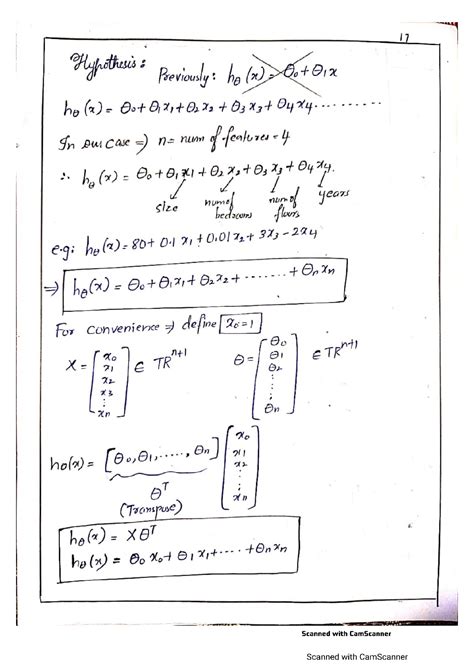 17
Hypothesis : Previously : hθ(x) = θ0 + θ1x
hθ(x) = θ0+θ1x1+θ2x2 + θ3x3+θ4x4..........
In our case ⇒ n = num of features = 4
∴ hθ(x) = θ0 + θ1x1 + θ2x2 + θ3x3 + θ4x4.
size num of bedrooms num of floors years
e.g: hθ(x) = 80 + 0.1 x1 + 0.01x2 + 3x3 − 2x4
⇒ hθ(x) = θ0+θ1x1+θ2x2 + ....... + θnxn
For convenience ⇒ define x0=1
X = [x0 x1 x2 x3 : xn] ∈ TR^n+1 θ = [θ0 θ1 θ2 : θn] ∈ TR^n+1
hθ(x) = [θ0,θ1,....., θn] [x0 x1 x2 : xn]
θ^T
(Transpose)
hθ(x) = Xθ^T
hθ(x) = θ0x0+θ1x1+.... +θnxn
Scanned with CamScanner
Scanned with CamScanner